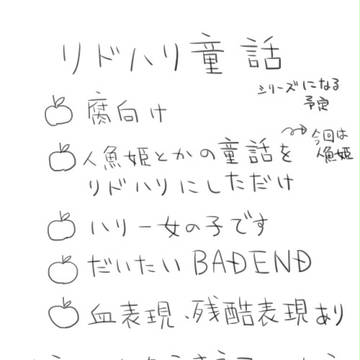 リドハリ童話
シリーズになる
予定
腐向け
今回は
人魚姫
人魚姫とかの童話を
リドハリにしただけ
ハリー女の子です
だいたいBADEND
血表現、残酷表現あり